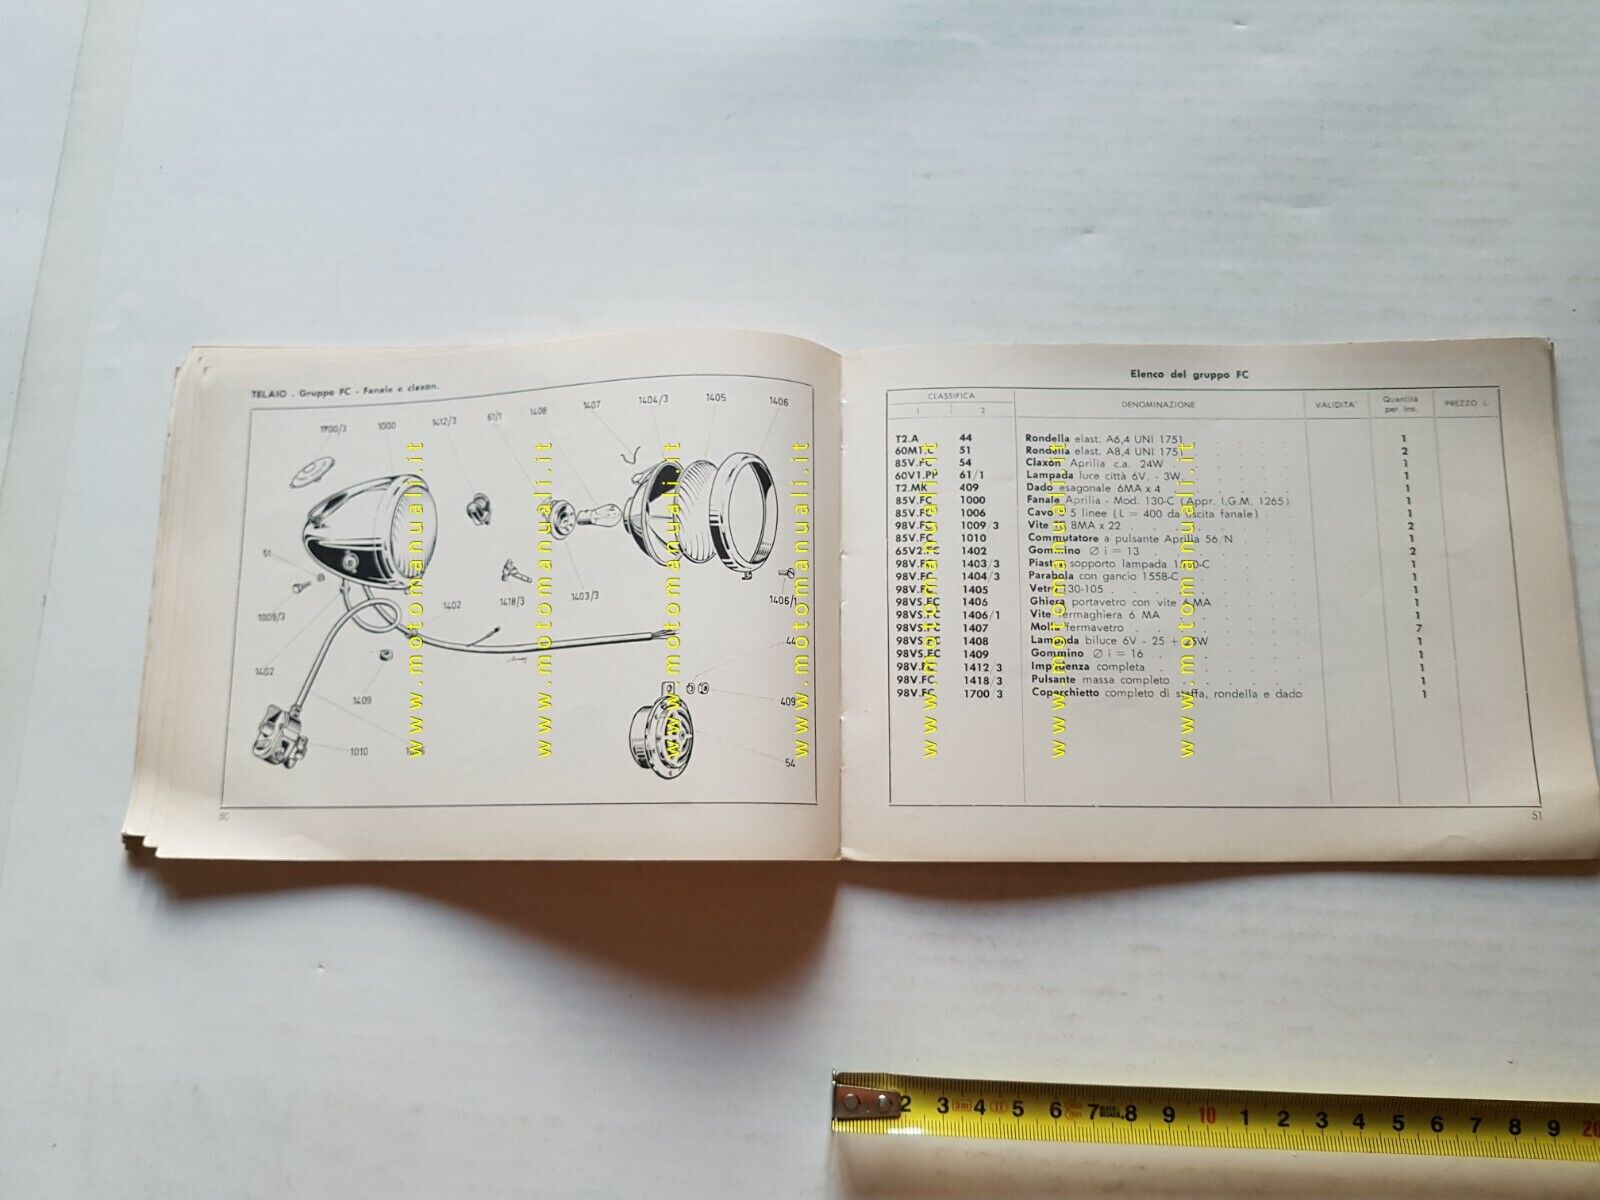 TELAIO - Gruppo FC - Fanale e claxon.
1700/3 1000 1412/3 61/1 1408 1407 1404/3 1405 1406
51
1009/3
1402
1418/3
1403/3
1406/1
44
1402
1409
409
1010
54
50
Elenco del gruppo FC
CLASSIFICA DENOMINAZIONE VALIDITA' Quantità per ins. PREZZO L.
1 2
T2.A 44 Rondella elast. A6,4 UNI 1751 1
60M1.C 51 Rondella elast. A8,4 UNI 1751 2
85V.FC 54 Claxon Aprilia c.a. 24W 1
60V1.PP 61/1 Lampada luce città 6V. - 3W 1
T2.MK 409 Dado esagonale 6MA x 4 1
85V.FC 1000 Fanale Aprilia - Mod. 130-C (Appr. I.G.M. 1265) 1
85V.FC 1006 Cavo a 5 linee (L = 400 da uscita fanale) 1
98V.FC 1009/3 Vite 8MA x 22 2
85V.FC 1010 Commutatore a pulsante Aprilia 56/N 1
65V2.FC 1402 Gommino Ø i = 13 2
98V.FC 1403/3 Piastra sopporto lampada 1 1
98V.FC 1404/3 Parabola con gancio 1558-C 1
98V.FC 1405 Vetro 130-105 1
98VS.FC 1406 Ghiera portavetro con vite 6 MA 1
98VS.FC 1406/1 Vite fermaghiera 6 MA 1
98VS.FC 1407 Molla fermavetro 7
98VS.FC 1408 Lampada biluce 6V - 25 + 1
98VS.FC 1409 Gommino Ø i = 16 1
98V.FC 1412/3 Impedenza completa 1
98V.FC 1418/3 Pulsante massa completo 1
98V.FC 1700/3 Coperchietto completo di staffa, rondella e dado 1
51
www.motomanuali.it
www.motomanuali.it
www.motomanuali.it
www.motomanuali.it
www.motomanuali.it
www.motomanuali.it
www.motomanuali.it
2 3 3m 4 II 5 6 7 8 9 10 1 2 3 4 5 6 7 8 9 20